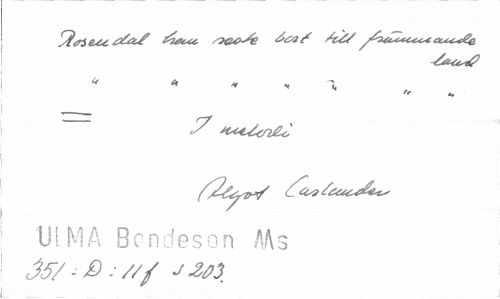 Rosendal han reste bort till främmande
land
" " " " " " "
I melodi
Algot Carlander
ULMA Bondeson Ms
351:D:11f s 203.